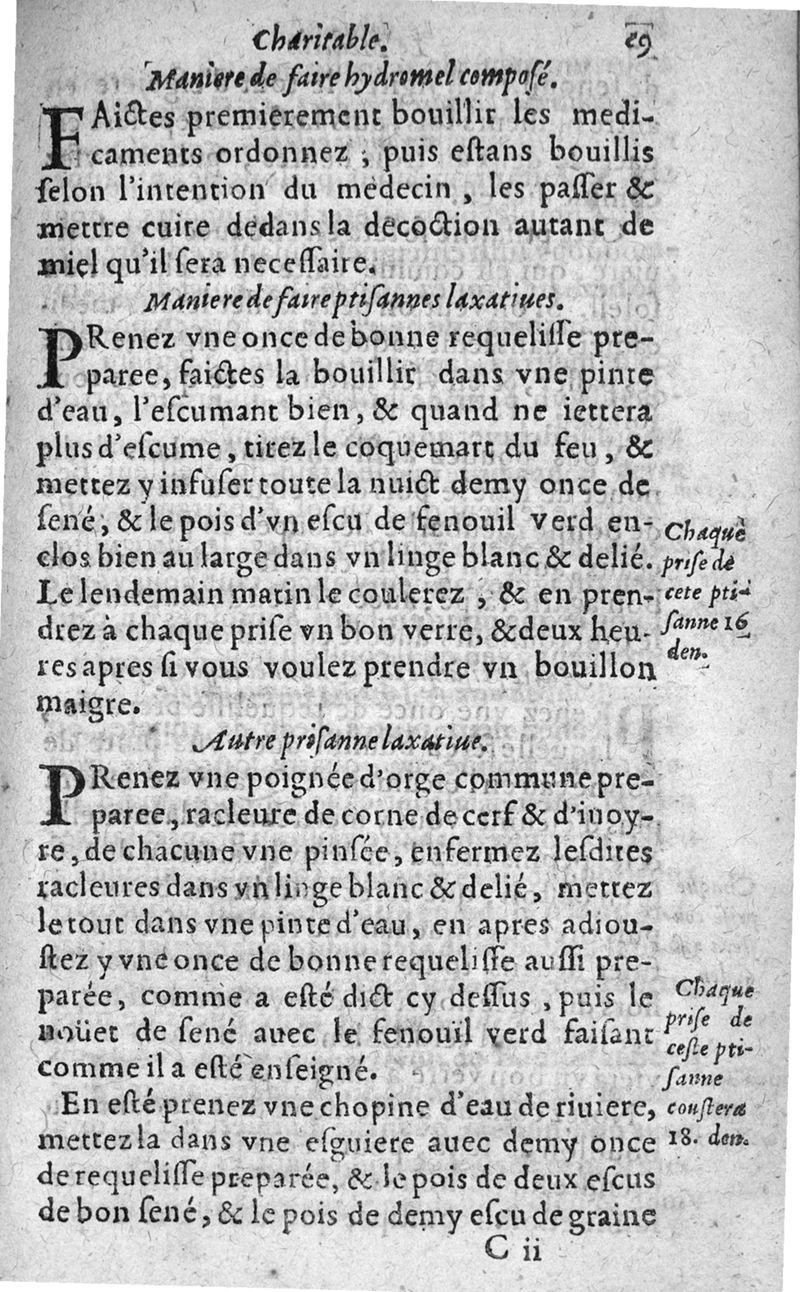 Charitable. 29
Maniere de faire hydromel composé.
FAictes premierement bouillir les medi-
caments ordonnez ; puis estans bouillis
selon l'intention du medecin , les passer &
mettre cuire dedans la decoction autant de
miel qu'il sera necessaire.
Maniere de faire ptisannes laxatiues.
PRenez vne once de bonne requelisse pre-
paree, faictes la bouillir dans vne pinte
d'eau, l'escumant bien, & quand ne iettera
plus d'escume, tirez le coquemart du feu, &
mettez y infuser toute la nuict demy once de
sené, & le pois d'vn escu de fenouil verd en-
clos bien au large dans vn linge blanc & delié.
Le lendemain matin le coulerez , & en pren-
drez à chaque prise vn bon verre, & deux heu-
res apres si vous voulez prendre vn bouillon
maigre.
Chaque
prise de
cete pti-
sanne 16
den.
Autre ptisanne laxatiue.
PRenez vne poignée d'orge commune pre-
paree, racleure de corne de cerf & d'iuoy-
re, de chacune vne pinsée, enfermez lesdites
racleures dans vn linge blanc & delié, mettez
le tout dans vne pinte d'eau, en apres adiou-
stez y vne once de bonne requelisse aussi pre-
parée, comme a esté dict cy dessus , puis le
noüet de sené auec le fenouïl verd faisant
comme il a esté enseigné.
En esté prenez vne chopine d'eau de riuiere,
mettez la dans vne esguiere auec demy once
de requelisse preparée, & le pois de deux escus
de bon sené, & le pois de demy escu de graine
Chaque
prise de
ceste pti-
sanne
coustera
18. den.
C ii